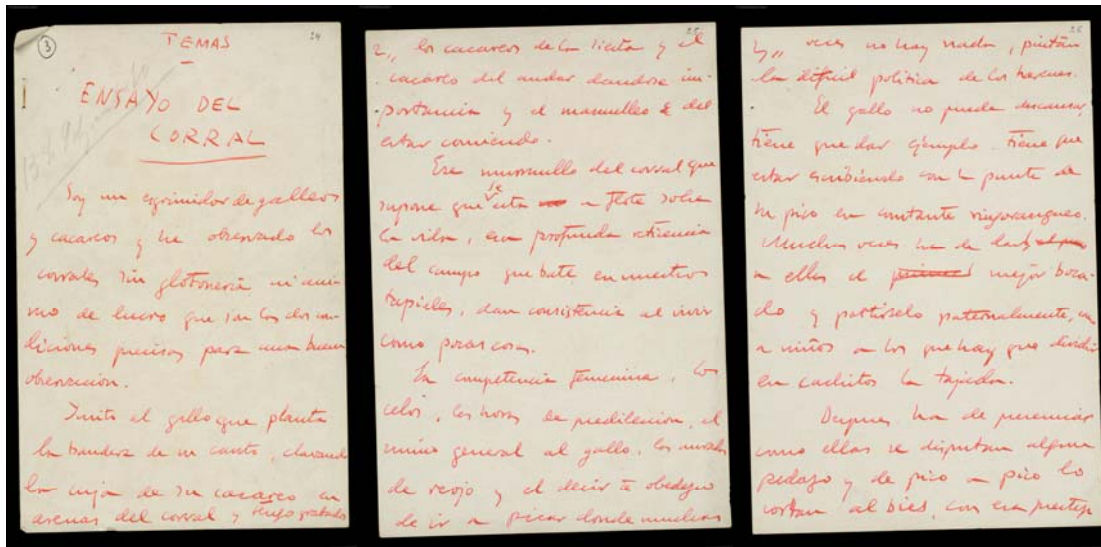 3
TEMAS
24
ENSAYO DEL
CORRAL
Soy un esgrimidor de galleos
y cacareos y he observado los
corrales sin glotonería ni áni-
mo de lucro que son las dos con-
diciones precisas para una buena
observación.
Imito al gallo que planta
la bandera de su canto, clavando
la caja de su cacareo en
arenas del corral y tengo grabados
25
2,, los cacareos de la siesta y el
cacareo del andar dandose im-
portancia y el del
estar comiendo.
Ese murmullo del corral que
supone que se esta a flote sobre
la vida, esa profunda reticencia
del campo que bate en nuestros
tapiales, dan consistencia al vivir
como pocas cosas.
La competencia femenina, los
celos, las horas de predilección, el
mimo general al gallo, las miradas
de reojo y el decir te obedezco
de ir a picar donde muchas
26
3,, veces no hay nada, pintan
la difícil política de los harenes.
El gallo no puede descansar,
tiene que dar ejemplo. Tiene que
estar escribiendo con la punta de
su pico en constante
Muchas veces ha de dar
a ellas el mejor boca-
do y partírselo paternalmente, como
a niños a los que hay que dividir
en cachitos la tajada.
Despues ha de presenciar
como ellas se disputan algun
pedazo y de pico a pico lo
cortan al bies, con esa presteza